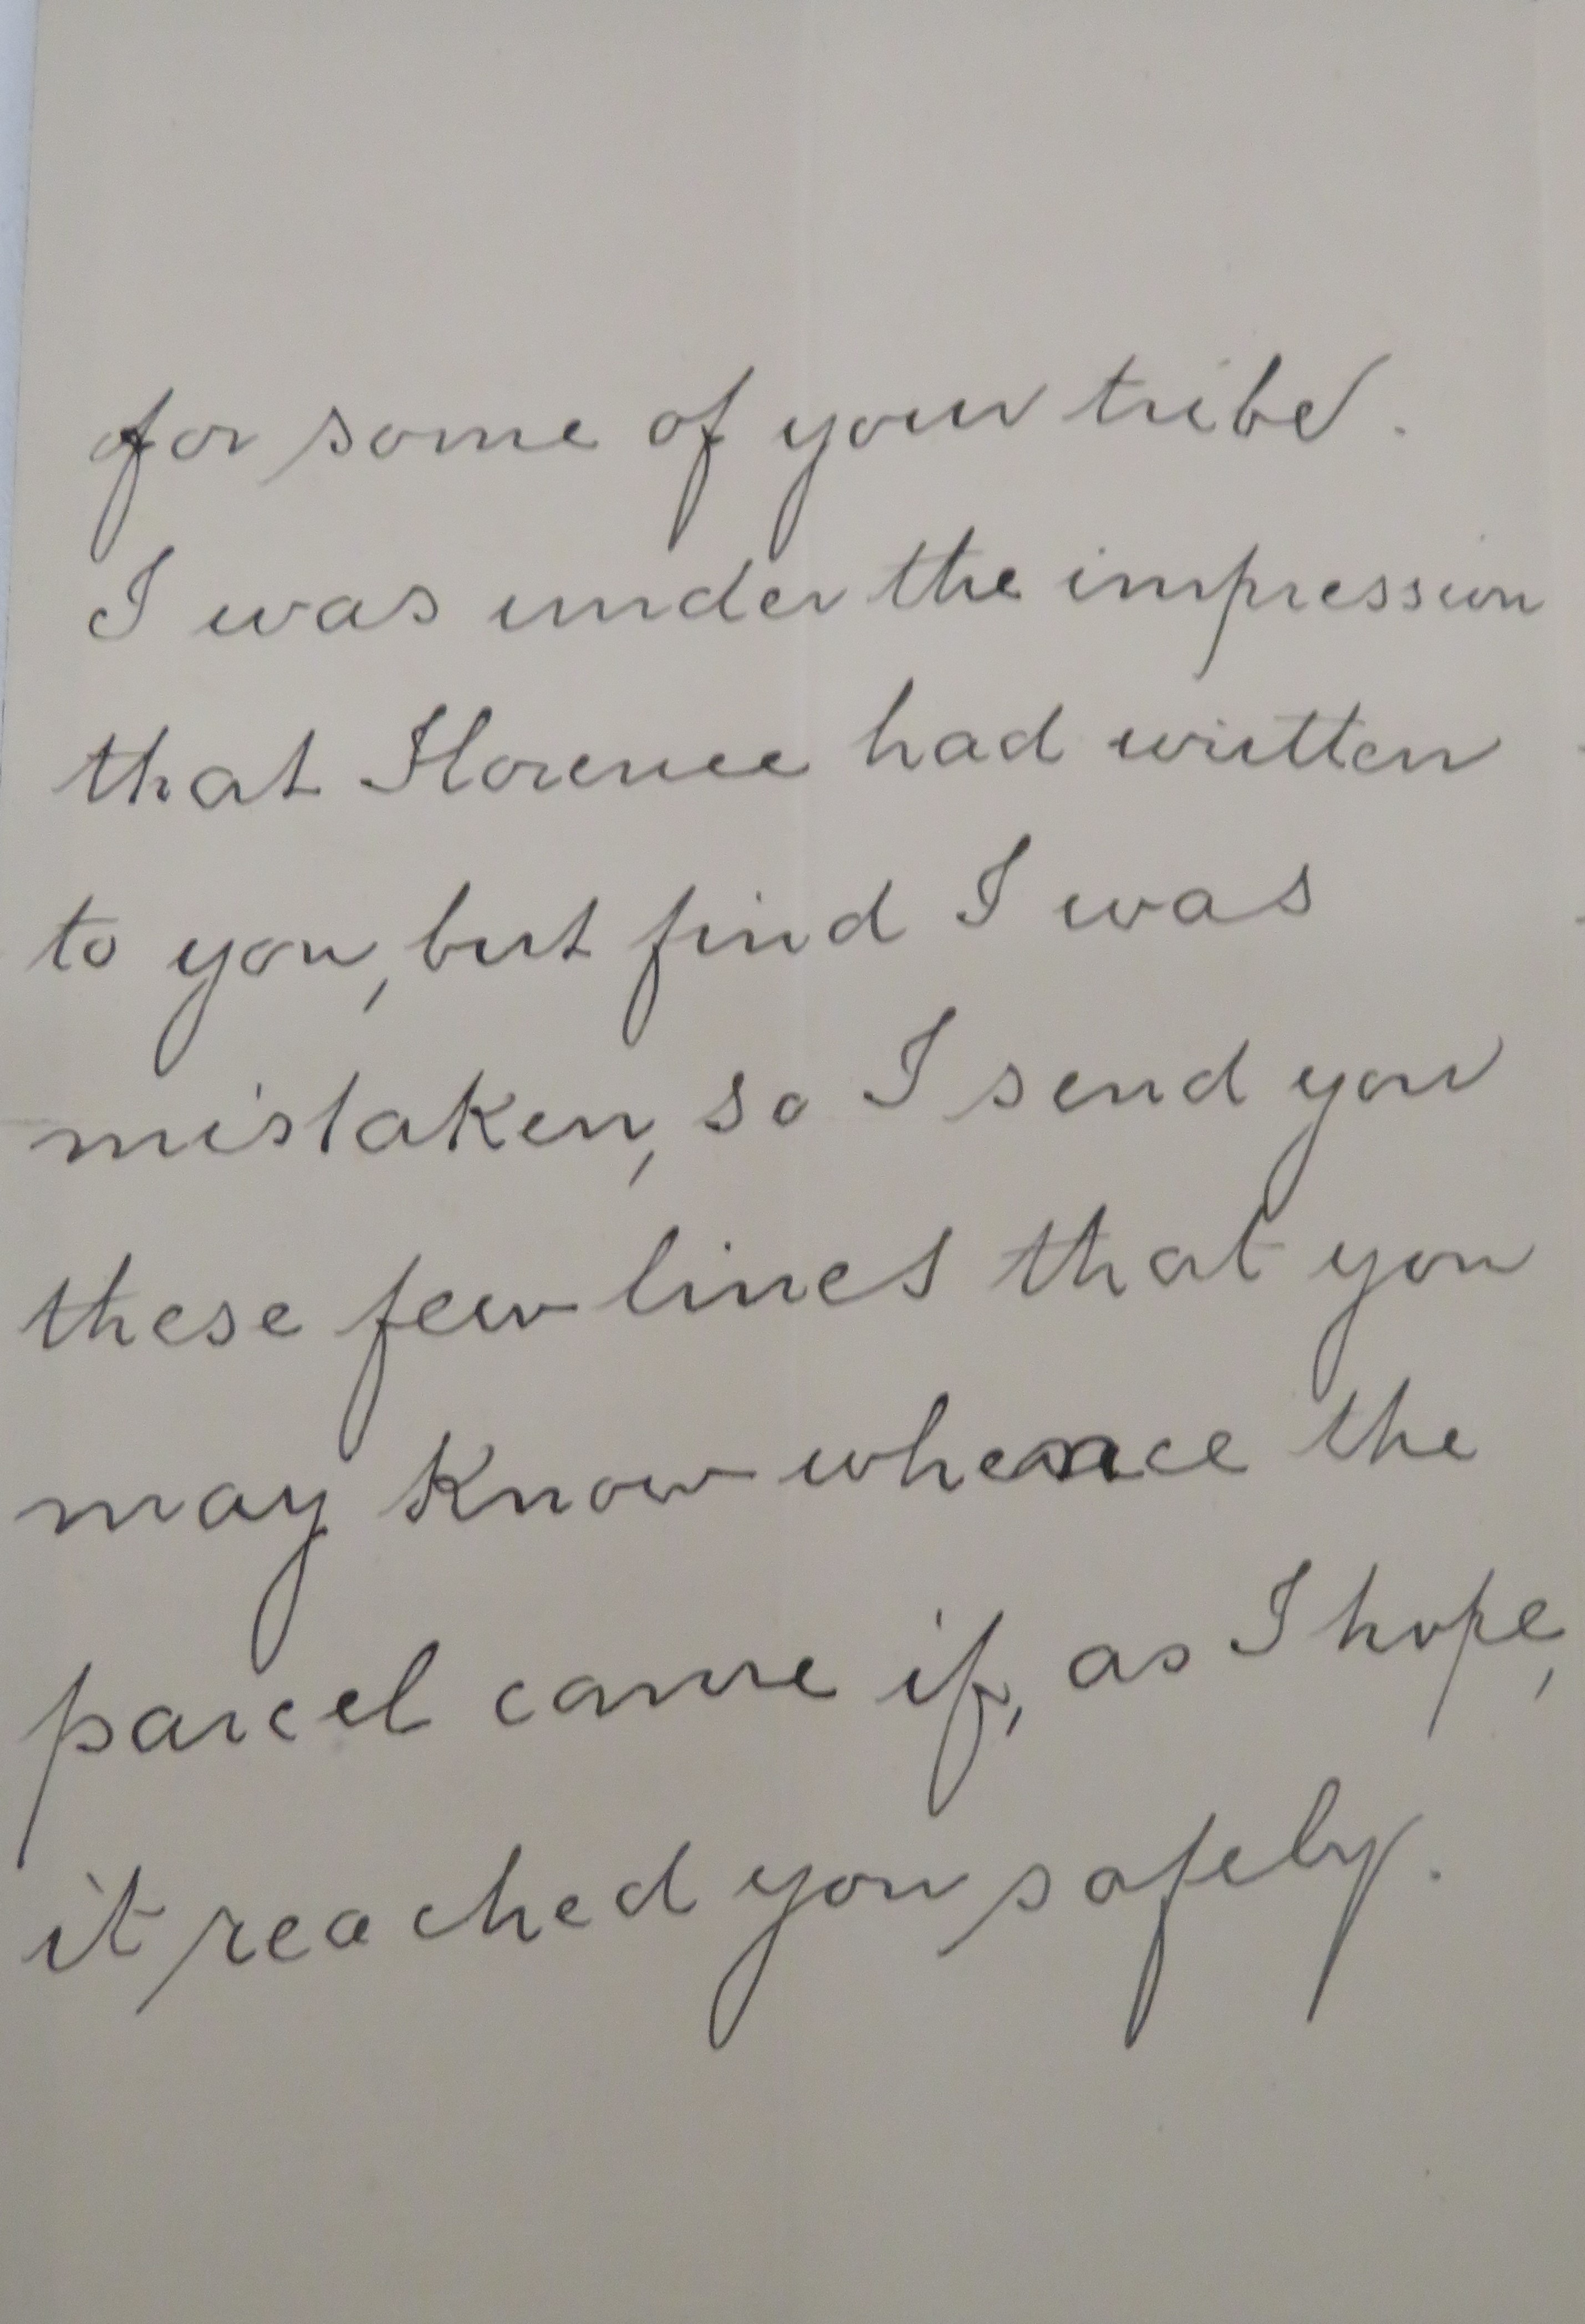 for some of your tribe.
I was under the impression
that Florence had written
to you, but find I was
mistaken, so I send you
these few lines that you
may know whence the
parcel came if, as I hope,
it reached you safely.